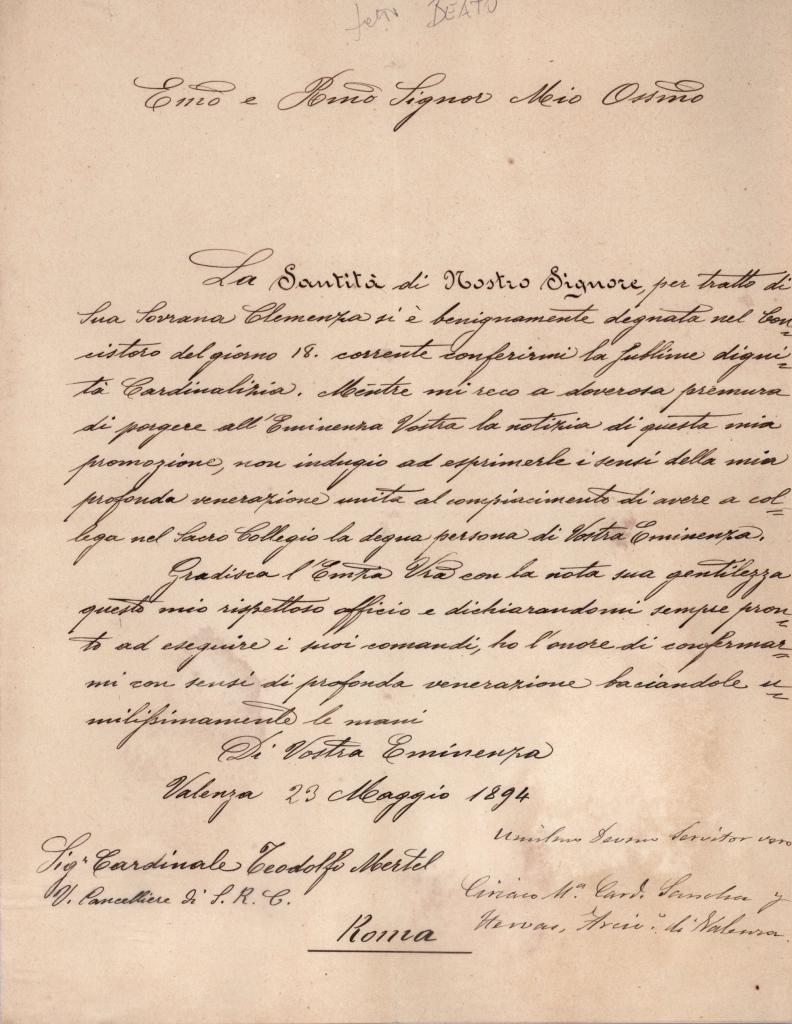 BEATO
Emo e Rmo Signor Mio Ossmo
La Santità di Nostro Signore, per tratto di
Sua Sovrana Clemenza si è benignamente degnata nel Con=
cistoro del giorno 18. corrente conferirmi la sublime digni=
tà Cardinalizia. Mentre mi reco a doverosa premura
di porgere all'Eminenza Vostra la notizia di questa mia
promozione, non indugio ad esprimerle i sensi della mia
profonda venerazione unita al compiacimento di avere a col=
lega nel Sacro Collegio la degna persona di Vostra Eminenza.
Gradisca l'Emza Vra con la nota sua gentilezza
questo mio rispettoso officio e dichiarandomi sempre pron=
to ad eseguire i suoi comandi, ho l'onore di confermar=
mi con sensi di profonda venerazione baciandole u=
milissimamente le mani
Di Vostra Eminenza
Valenza 23 Maggio 1894
Umilmo Devmo Servitor vero
Sigr Cardinale Teodolfo Mertel
V. Cancelliere di S. R. C.
Ciriaco Ma. Card. Sancha y
Hervas, Arcivo. di Valenza.
Roma